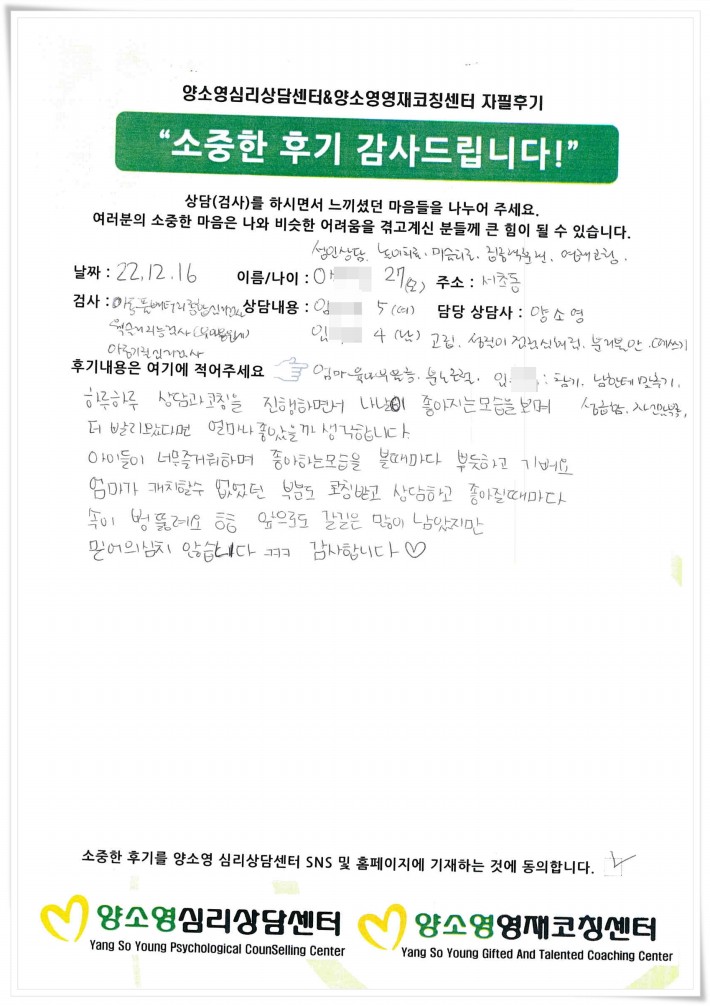 양소영심리상담센터&양소영영재코칭센터 자필후기
“소중한 후기 감사드립니다!”
상담(검사)를 하시면서 느끼셨던 마음들을 나누어 주세요.
여러분의 소중한 마음은 나와 비슷한 어려움을 겪고계신 분들께 큰 힘이 될 수 있습니다.
성인상담, 놀이치료, 미술치료, 집중력훈련, 영재코칭,
날짜 : 22.12.16 이름/나이 : 27(모) 주소 : 서초동
검사 : 상담내용 : 5 (여) 담당 상담사 : 양소영
4 (남) 고집, 분리불안, 떼쓰기
후기내용은 여기에 적어주세요 엄마 분노조절,
하루하루 상담과코칭을 진행하면서 나날이 좋아지는모습을보며 성급함, 자신감부족,
더 빨리왔다면 얼마나좋았을까 생각합니다.
아이들이 너무즐거워하며 좋아하는모습을 볼때마다 뿌듯하고 기뻐요
엄마가 캐치할수 없었던 부분도 코칭받고 상담하고 좋아질때마다
속이 뻥 뚫려요 앞으로도 갈길은 많이 남았지만
믿어의심치 않습니다 ㅋㅋㅋ 감사합니다♡
소중한 후기를 양소영 심리상담센터 SNS 및 홈페이지에 기재하는 것에 동의합니다.
양소영심리상담센터 양소영영재코칭센터
Yang So Young Psychological CounSelling Center Yang So Young Gifted And Talented Coaching Center